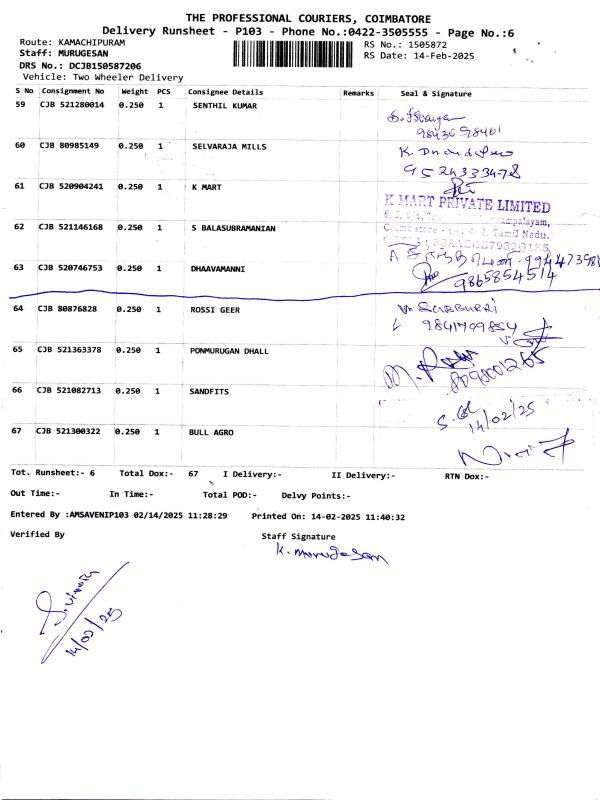 THE PROFESSIONAL COURIERS, COIMBATORE
Delivery Runsheet - P103 - Phone No.:0422-3505555 - Page No.:6
Route: KAMACHIPURAM RS No.: 1505872
Staff: MURUGESAN RS Date: 14-Feb-2025
DRS No.: DCJB150587206
Vehicle: Two Wheeler Delivery
S No Consignment No Weight PCS Consignee Details Remarks Seal & Signature
59 CJB 521280014 0.250 1 SENTHIL KUMAR
60 CJB 80985149 0.250 1 SELVARAJA MILLS
9524333478
61 CJB 520904241 0.250 1 K MART
K MART PRIVATE LIMITED
62 CJB 521146168 0.250 1 S BALASUBRAMANIAN
Tamil Nadu.
63 CJB 520746753 0.250 1 DHAAVAMANNI
9865854514
64 CJB 80876828 0.250 1 ROSSI GEER
65 CJB 521363378 0.250 1 PONMURUGAN DHALL
66 CJB 521082713 0.250 1 SANDFITS
14/02/25
67 CJB 521300322 0.250 1 BULL AGRO
Tot. Runsheet:- 6 Total Dox:- 67 I Delivery:- II Delivery:- RTN Dox:-
Out Time:- In Time:- Total POD:- Delvy Points:-
Entered By :AMSAVENIP103 02/14/2025 11:28:29 Printed On: 14-02-2025 11:40:32
Verified By Staff Signature
K. Murugesan
14/02/25